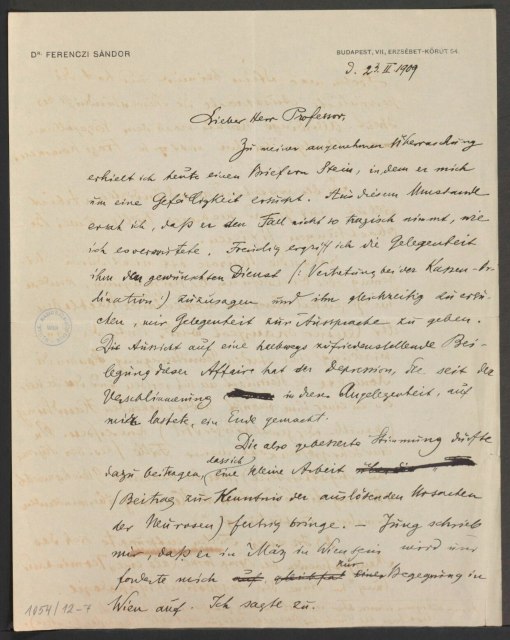 Dr. FERENCZI SÁNDOR
BUDAPEST, VII., ERZSÉBET-KÖRÚT 54.
d. 23. II 1909
Lieber Herr Professor,
Zu meiner angenehmen Überraschung
erhielt ich heute einen Brief von Stein, in dem er mich
um eine Gefälligkeit ersucht. Aus diesem Umstande
ersah ich, daß er den Fall nicht so tragisch nimmt, wie
ich es erwartete. Freudig ergriff ich die Gelegenheit
ihm den gewünschten Dienst (: Vertretung bei der Kassen-Or-
dination :) zuzusagen und ihn gleichzeitig zu ersu-
chen, mir Gelegenheit zur Aussprache zu geben.
Die Aussicht auf eine halbwegs zufriedenstellende Bei-
legung dieser Affaire hat der Depression, die seit der
Verschlimmerung in dieser Angelegenheit, auf
mir lastete, ein Ende gemacht.
Die also gebesserte Stimmung dürfte
dazu beitragen, dass ich eine kleine Arbeit
(Beitrag zur Kenntnis der auslösenden Ursachen
der Neurosen) fertig bringe. – Jung schrieb
mir, daß er im März in Wien sein wird und
forderte mich zur Begegnung in
Wien auf. Ich sagte zu.
1054/12-7